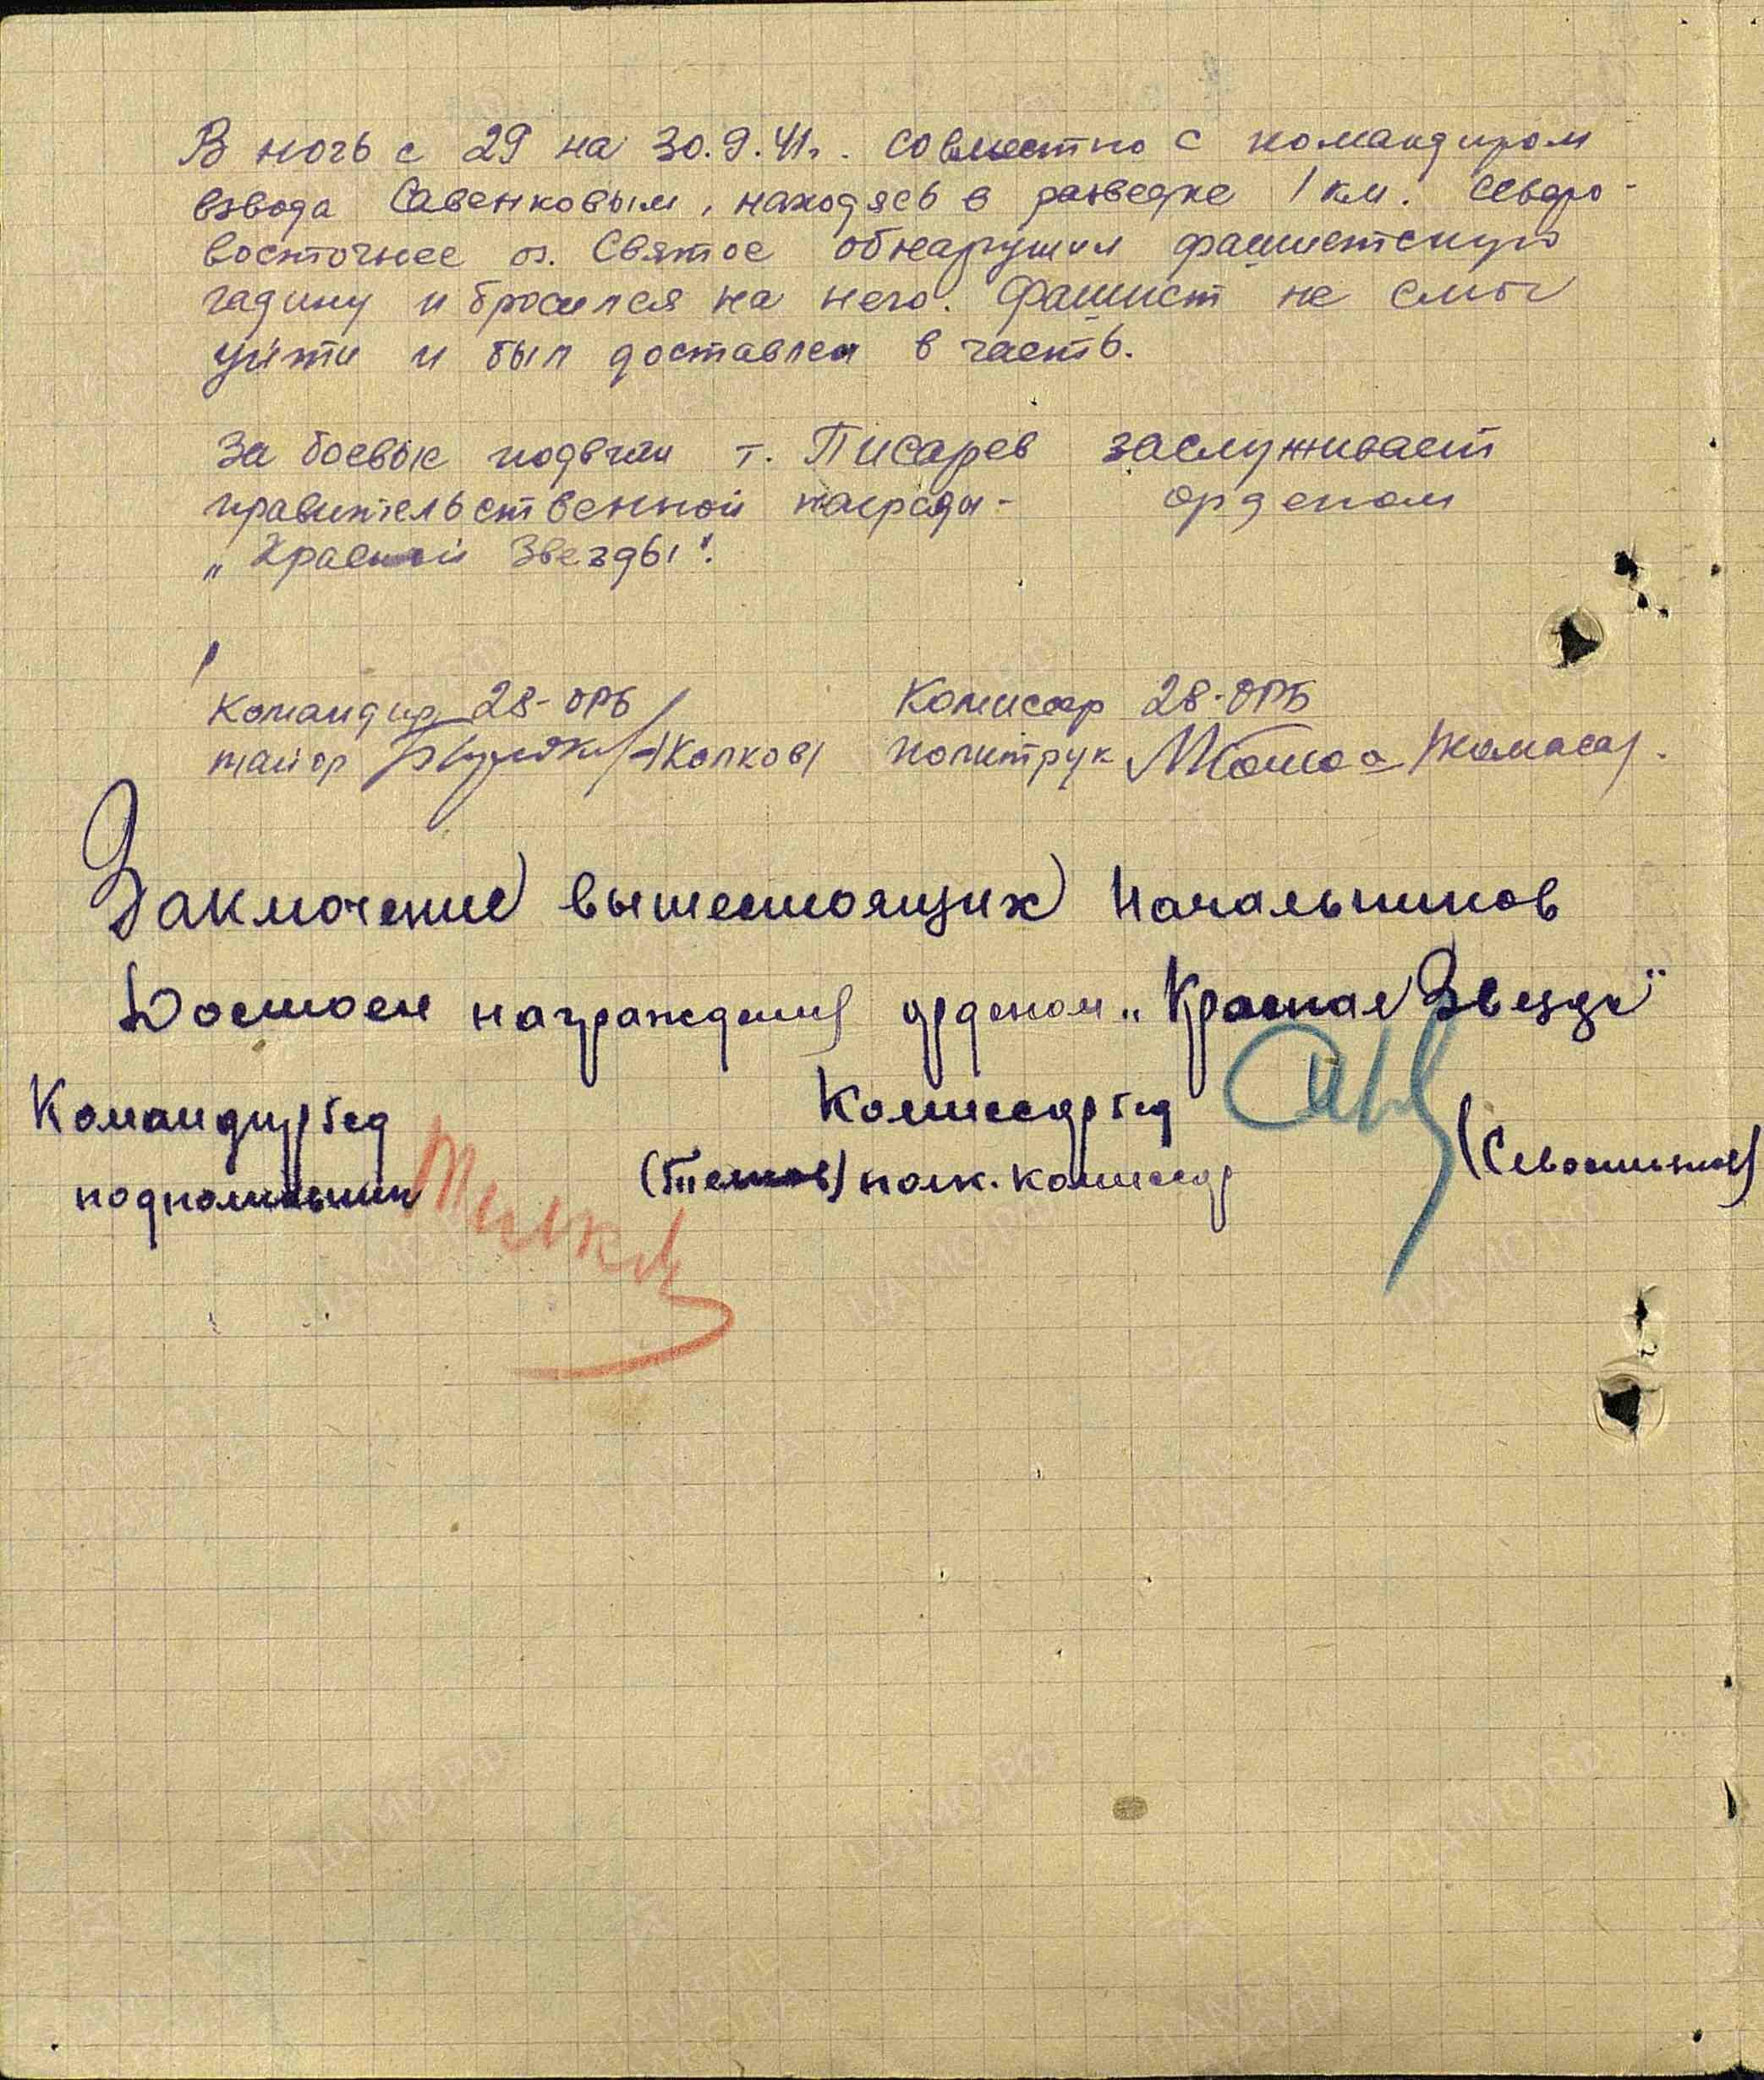 В ночь с 29 на 30.9.41г. совместно с командиром
взвода Савенковым, находясь в разведке 1 км. северо-
восточнее оз. Святое обнаружил фашистскую
гадину и бросился на него. Фашист не смог
уйти и был доставлен в часть.
За боевые подвиги т. Писарев заслуживает
правительственной награды - орденом
„Красной Звезды".
Командир 28-ОРБ Комисар 28-ОРБ
майор политрук
Заключение вышестоящих начальников
Достоен награждения орденом „Красная Звезда"
Командир Комиссар
подполковник полк. комиссар